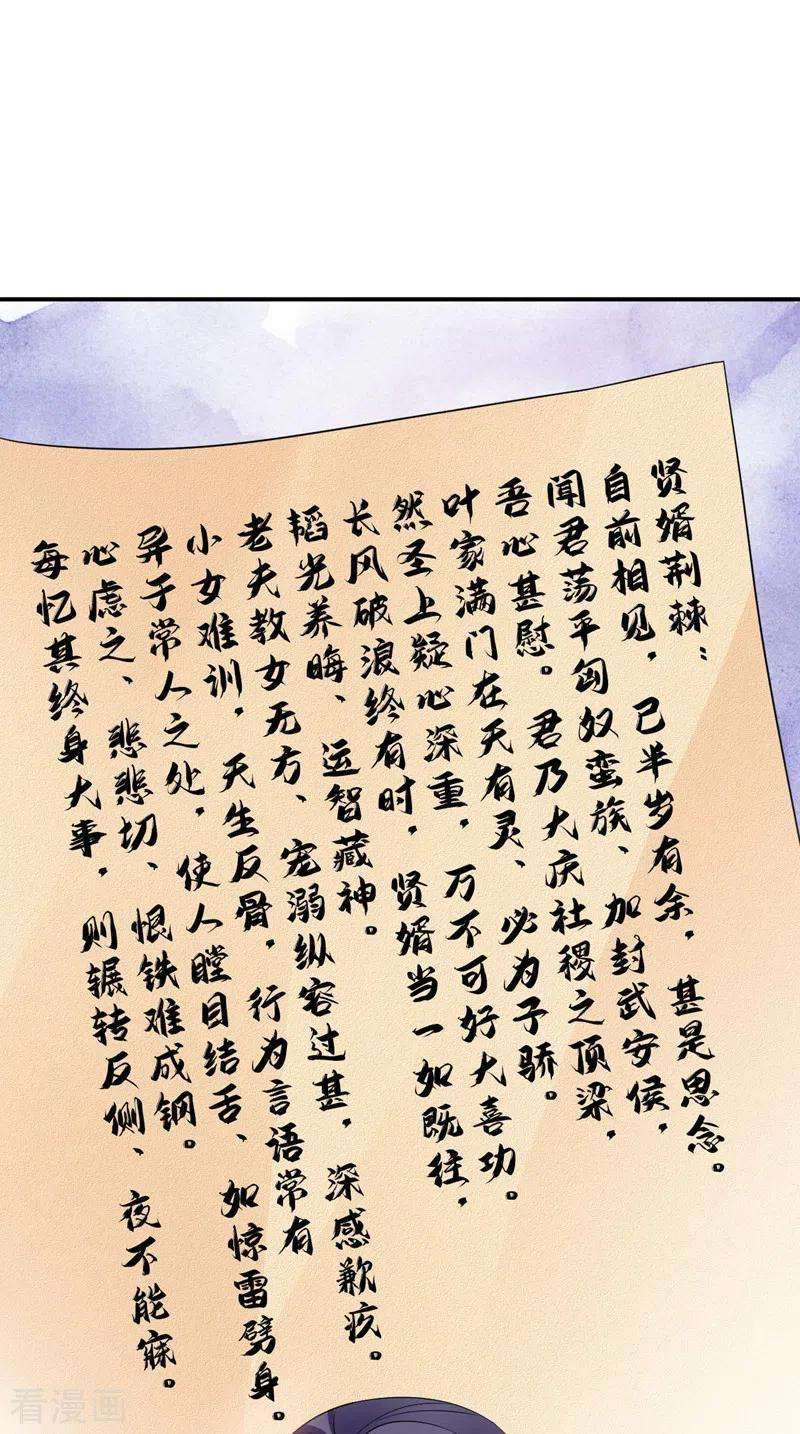 贤婿荆棘：
自前相见，已半岁有余，甚是思念。
闻君荡平匈奴蛮族、加封武安侯，
吾心甚慰。君乃大庆社稷之顶梁，
叶家满门在天有灵、必为子骄。
然圣上疑心深重，万不可好大喜功。
长风破浪终有时，贤婿当一如既往，
韬光养晦、运智藏神。
老夫教女无方、宠溺纵容过甚，深感歉疚。
小女难训，天生反骨，行为言语常有
异于常人之处，使人瞠目结舌、如惊雷劈身。
心虑之、悲悲切、恨铁难成钢。
每忆其终身大事，则辗转反侧、夜不能寐。
看漫画